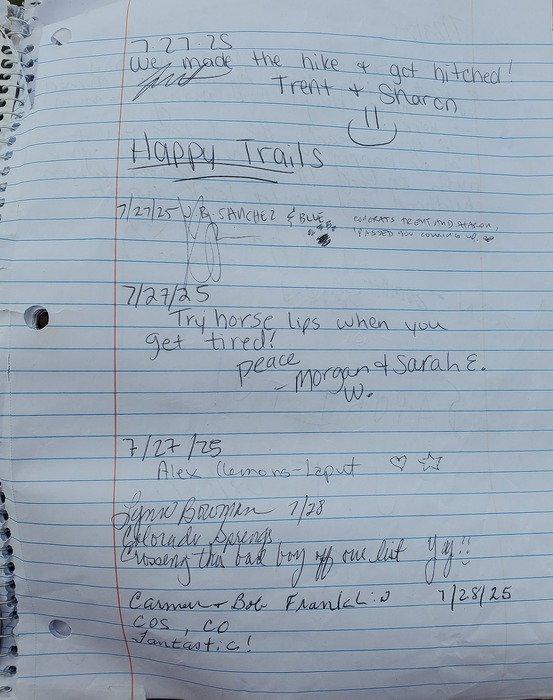 7.27.25
We made the hike & got hitched!
Trent & Sharon
Happy Trails
7/27/25 J.B. SANCHEZ & BLUE
CONGRATS TRENT AND SHARON,
I PASSED YOU COMING UP.
7/27/25
Try horse lips when you
get tired!
peace
- Morgan & Sarah E.
W.
7/27/25
Alex Clemons-Laput ♡ ☆
Lynn Bowman 7/28
Colorado Springs
Crossing this bad boy off our list Yay!!
Carmen & Bob Franklin 7/28/25
COS, CO
Fantastic!